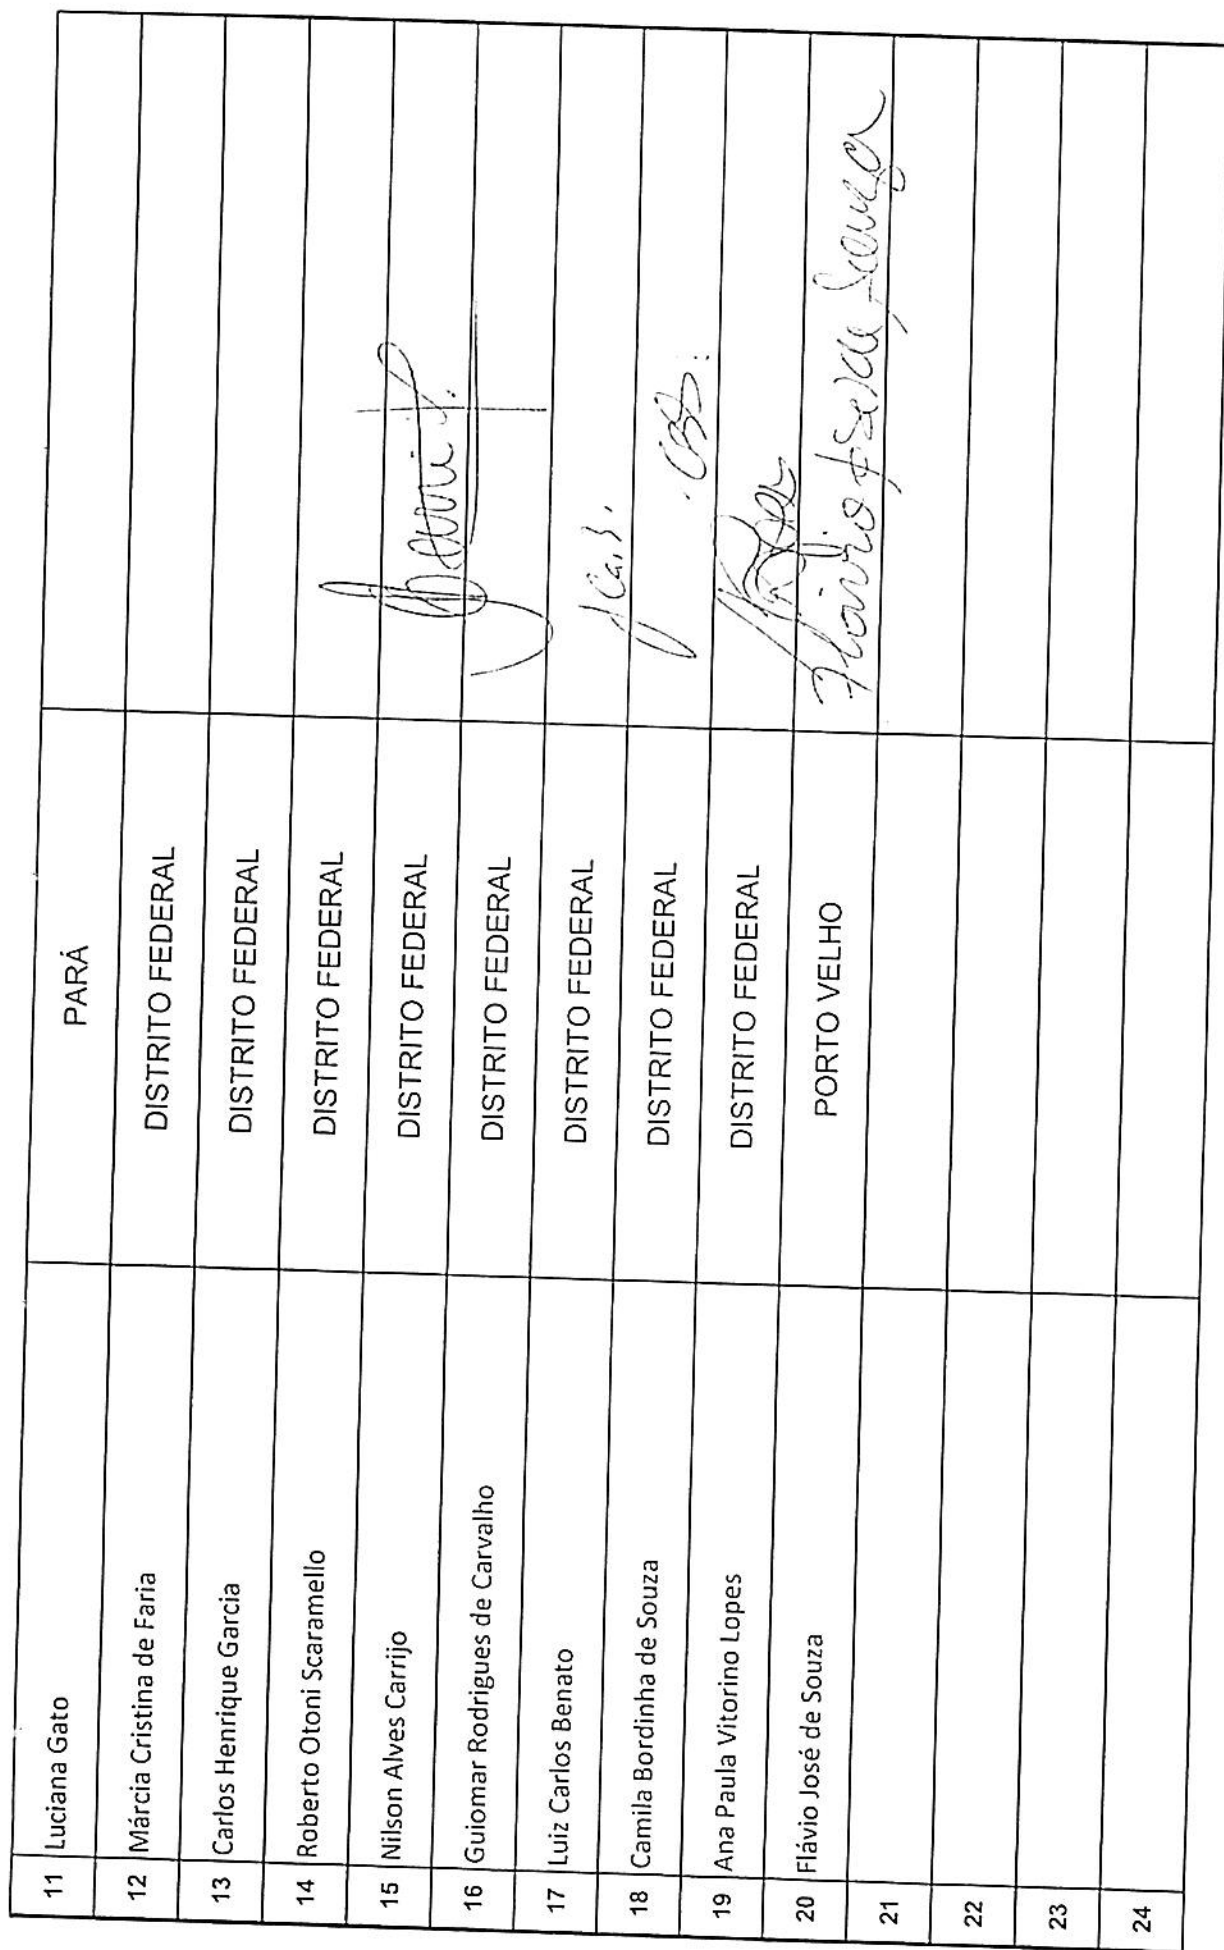 11 Luciana Gato PARÁ
12 Márcia Cristina de Faria DISTRITO FEDERAL
13 Carlos Henrique Garcia DISTRITO FEDERAL
14 Roberto Otoni Scaramello DISTRITO FEDERAL
15 Nilson Alves Carrijo DISTRITO FEDERAL
16 Guiomar Rodrigues de Carvalho DISTRITO FEDERAL
17 Luiz Carlos Benato DISTRITO FEDERAL
18 Camila Bordinha de Souza DISTRITO FEDERAL
19 Ana Paula Vitorino Lopes DISTRITO FEDERAL
20 Flávio José de Souza PORTO VELHO Flávio José de Souza
21
22
23
24